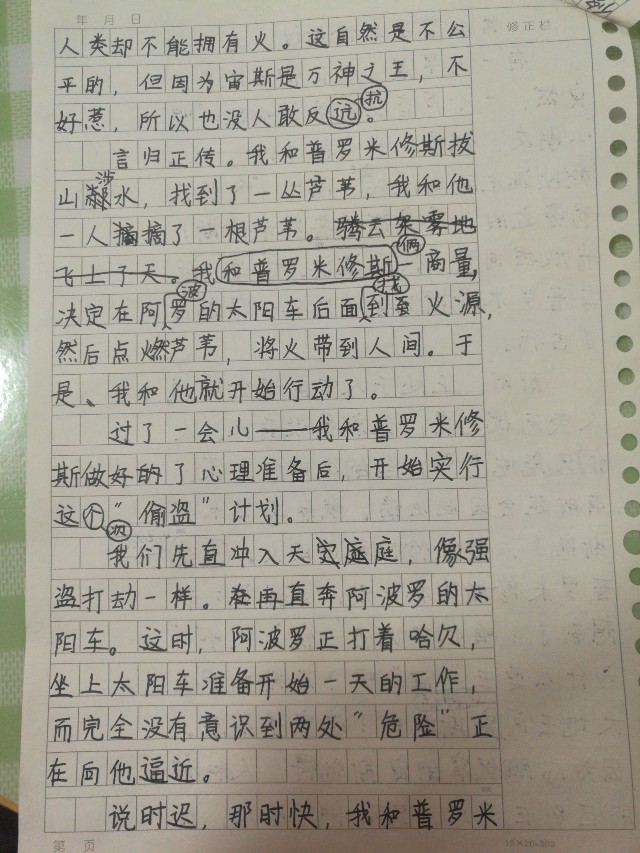 年 月 日
修正栏
人类却不能拥有火。这自然是不公
平的，但因为宙斯是万神之王，不
好惹，所以也没人敢反远抗。
言归正传。我和普罗米修斯拔
山涉水，找到了一丛芦苇，我和他
一人摘摘了一根芦苇。腾云架雾地
飞上了天。我和普罗米修斯俩一商量，
决定在阿波罗的太阳车后面找到火源，
然后点燃芦苇，将火带到人间。于
是、我和他就开始行动了。
过了一会儿——我和普罗米修
斯做好的了心理准备后，开始实行
这个次“偷盗”计划。
我们先直冲入天庭，像强
盗打劫一样。再直奔阿波罗的太
阳车。这时，阿波罗正打着哈欠，
坐上太阳车准备开始一天的工作，
而完全没有意识到两处“危险”正
在向他逼近。
说时迟，那时快，我和普罗米
第 页
15×20=300